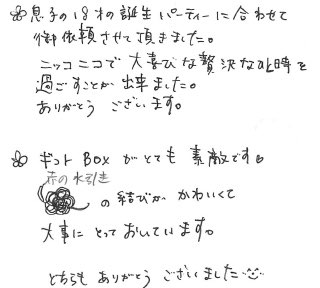 ✿ 息子の18才の誕生パーティーに合わせて
御依頼させて頂きました。
ニッコニコで大喜びな贅沢な時を
過ごすことが出来ました。
ありがとうございます。
✿ ギフトBOXがとても素敵です。
赤の水引き
の結びがかわいくて
大事にとっておいています。
どちらもありがとうございました